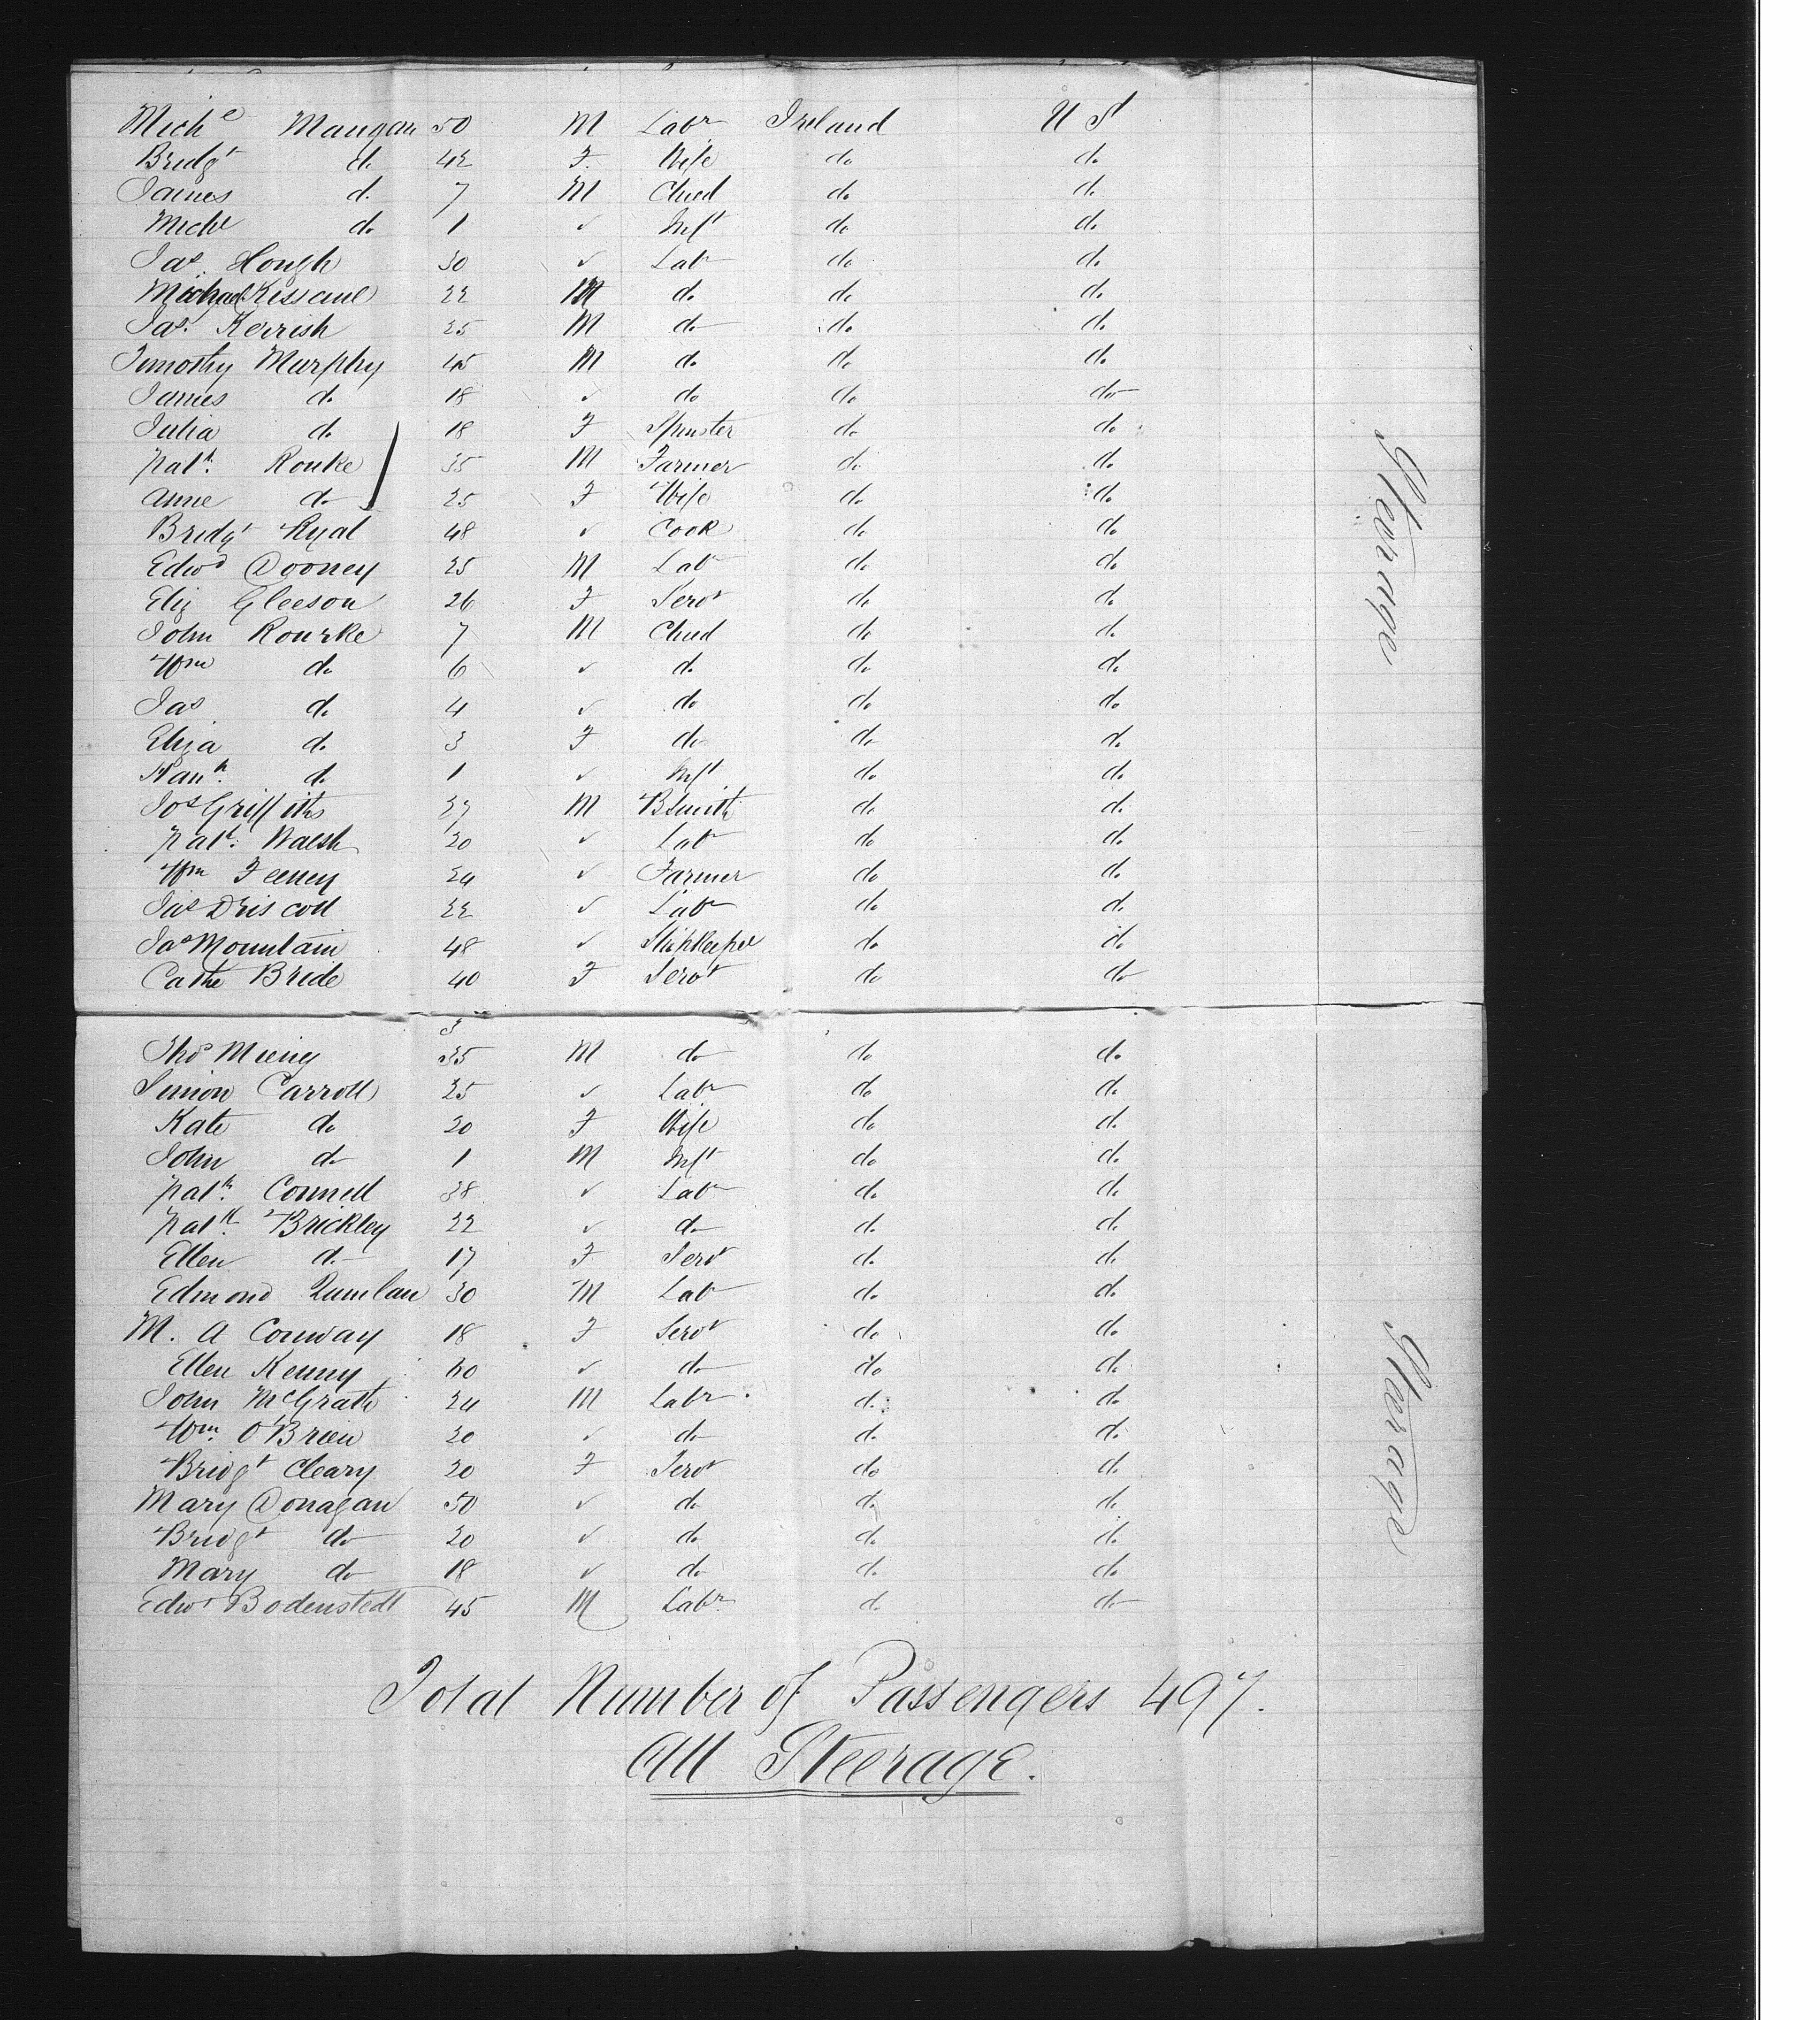 Michl Mangan 50 M Labr Ireland U S
Bridgt do 42 F Wife do do
James do 7 M Child do do
Michl do 1 ✓ Inft do do
Jas Hough 30 ✓ Labr do do
Michael Kissane 22 M do do do
Jas. Kerrish 25 M do do do
Timothy Murphy 45 M do do do
James do 18 ✓ do do do
Julia do 18 F Spinster do do
Patk. Rouke 35 M Farmer do do
Anne do 25 F Wife do do
Bridgt Ryal 48 ✓ Cook do do
Edwd Dooney 25 M Labr do do
Eliz Gleeson 26 F Servt do do
John Rourke 7 M Child do do
Wm do 6 ✓ do do do
Jas do 4 ✓ do do do
Eliza do 3 F do do do
Hanh. do 1 ✓ Inft do do
Jos Griffiths 27 M BSmith do do
Patk. Walsh 20 ✓ Labr do do
Wm Feeney 24 ✓ Farmer do do
Jas Driscoll 22 ✓ Labr do do
Jas Mountain 48 ✓ Shopkeeper do do
Cathe Bride 40 F Servt do do
3
Thos 35 M do do do
Simon Carroll 25 ✓ Labr do do
Kate do 20 F Wife do do
John do 1 M Inft do do
Patk. Connell 38 ✓ Labr do do
Patk. Brickley 22 ✓ do do do
Ellen do 17 F Servt do do
Edmond Quinlan 30 M Labr do do
M. A Conway 18 F Servt do do
Ellen Kenny 60 ✓ do do do
John McGrath 24 M Labr do do
Wm. O'Brien 20 ✓ do do do
Bridgt Cleary 20 F Servt do do
Mary Donagan 50 ✓ do do do
Bridgt do 20 ✓ do do do
Mary do 18 ✓ do do do
Edwd Bodenstedt 45 M Labr. do do
Total Number of Passengers 497.
All Steerage.
Steerage
Steerage